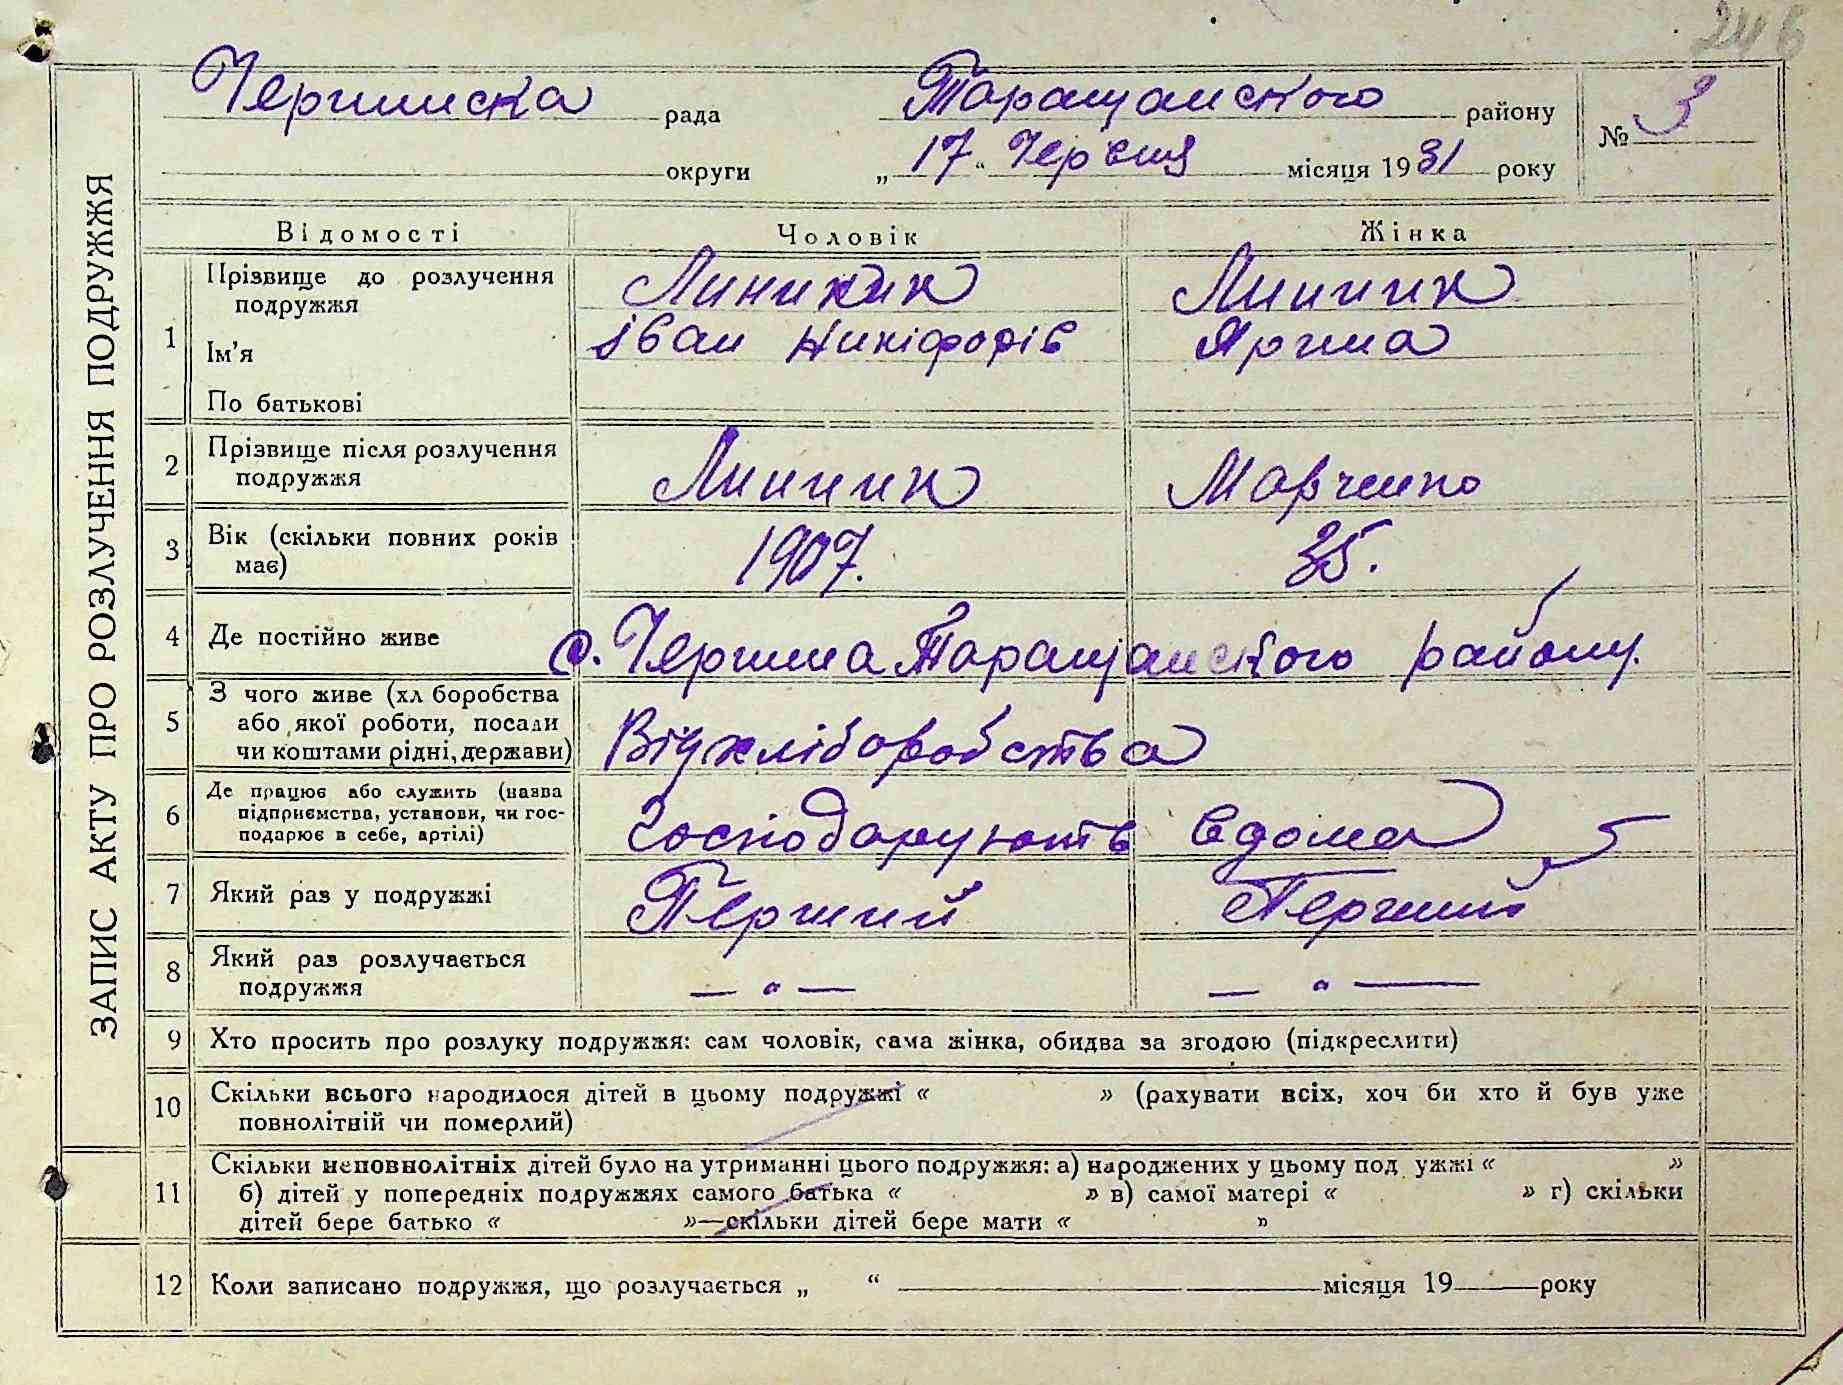 246
Чернинска рада Таращанского району № 3
округи „ 17 “ Червня місяця 1931 року
ЗАПИС АКТУ ПРО РОЗЛУЧЕННЯ ПОДРУЖЖЯ
Відомості Чоловік Жінка
1 Прізвище до розлучення подружжя Линник
Ім'я Іван Никіфорів
По батькові
2 Прізвище після розлучення подружжя Линник Марченко
3 Вік (скільки повних років має) 1907. 25.
4 Де постійно живе с. Чернина Таращанского району.
5 З чого живе (хлі боробства або якої роботи, посади чи коштами рідні, держави) Від хліборобства
6 Де працює або служить (назва підприємства, установи, чи господарює в себе, артілі) Господарують вдома
7 Який раз у подружжі Перший Перший
8 Який раз розлучається подружжя — " — — " —
9 Хто просить про розлуку подружжя: сам чоловік, сама жінка, обидва за згодою (підкреслити)
10 Скільки всього народилося дітей в цьому подружжі « » (рахувати всіх, хоч би хто й був уже
повнолітній чи померлий)
11 Скільки неповнолітніх дітей було на утриманні цього подружжя: а) народжених у цьому под ужжі « »
б) дітей у попередніх подружжях самого батька « » в) самої матері « » г) скільки
дітей бере батько « »—скільки дітей бере мати « »
12 Коли записано подружжя, що розлучається „ “ місяця 19 року